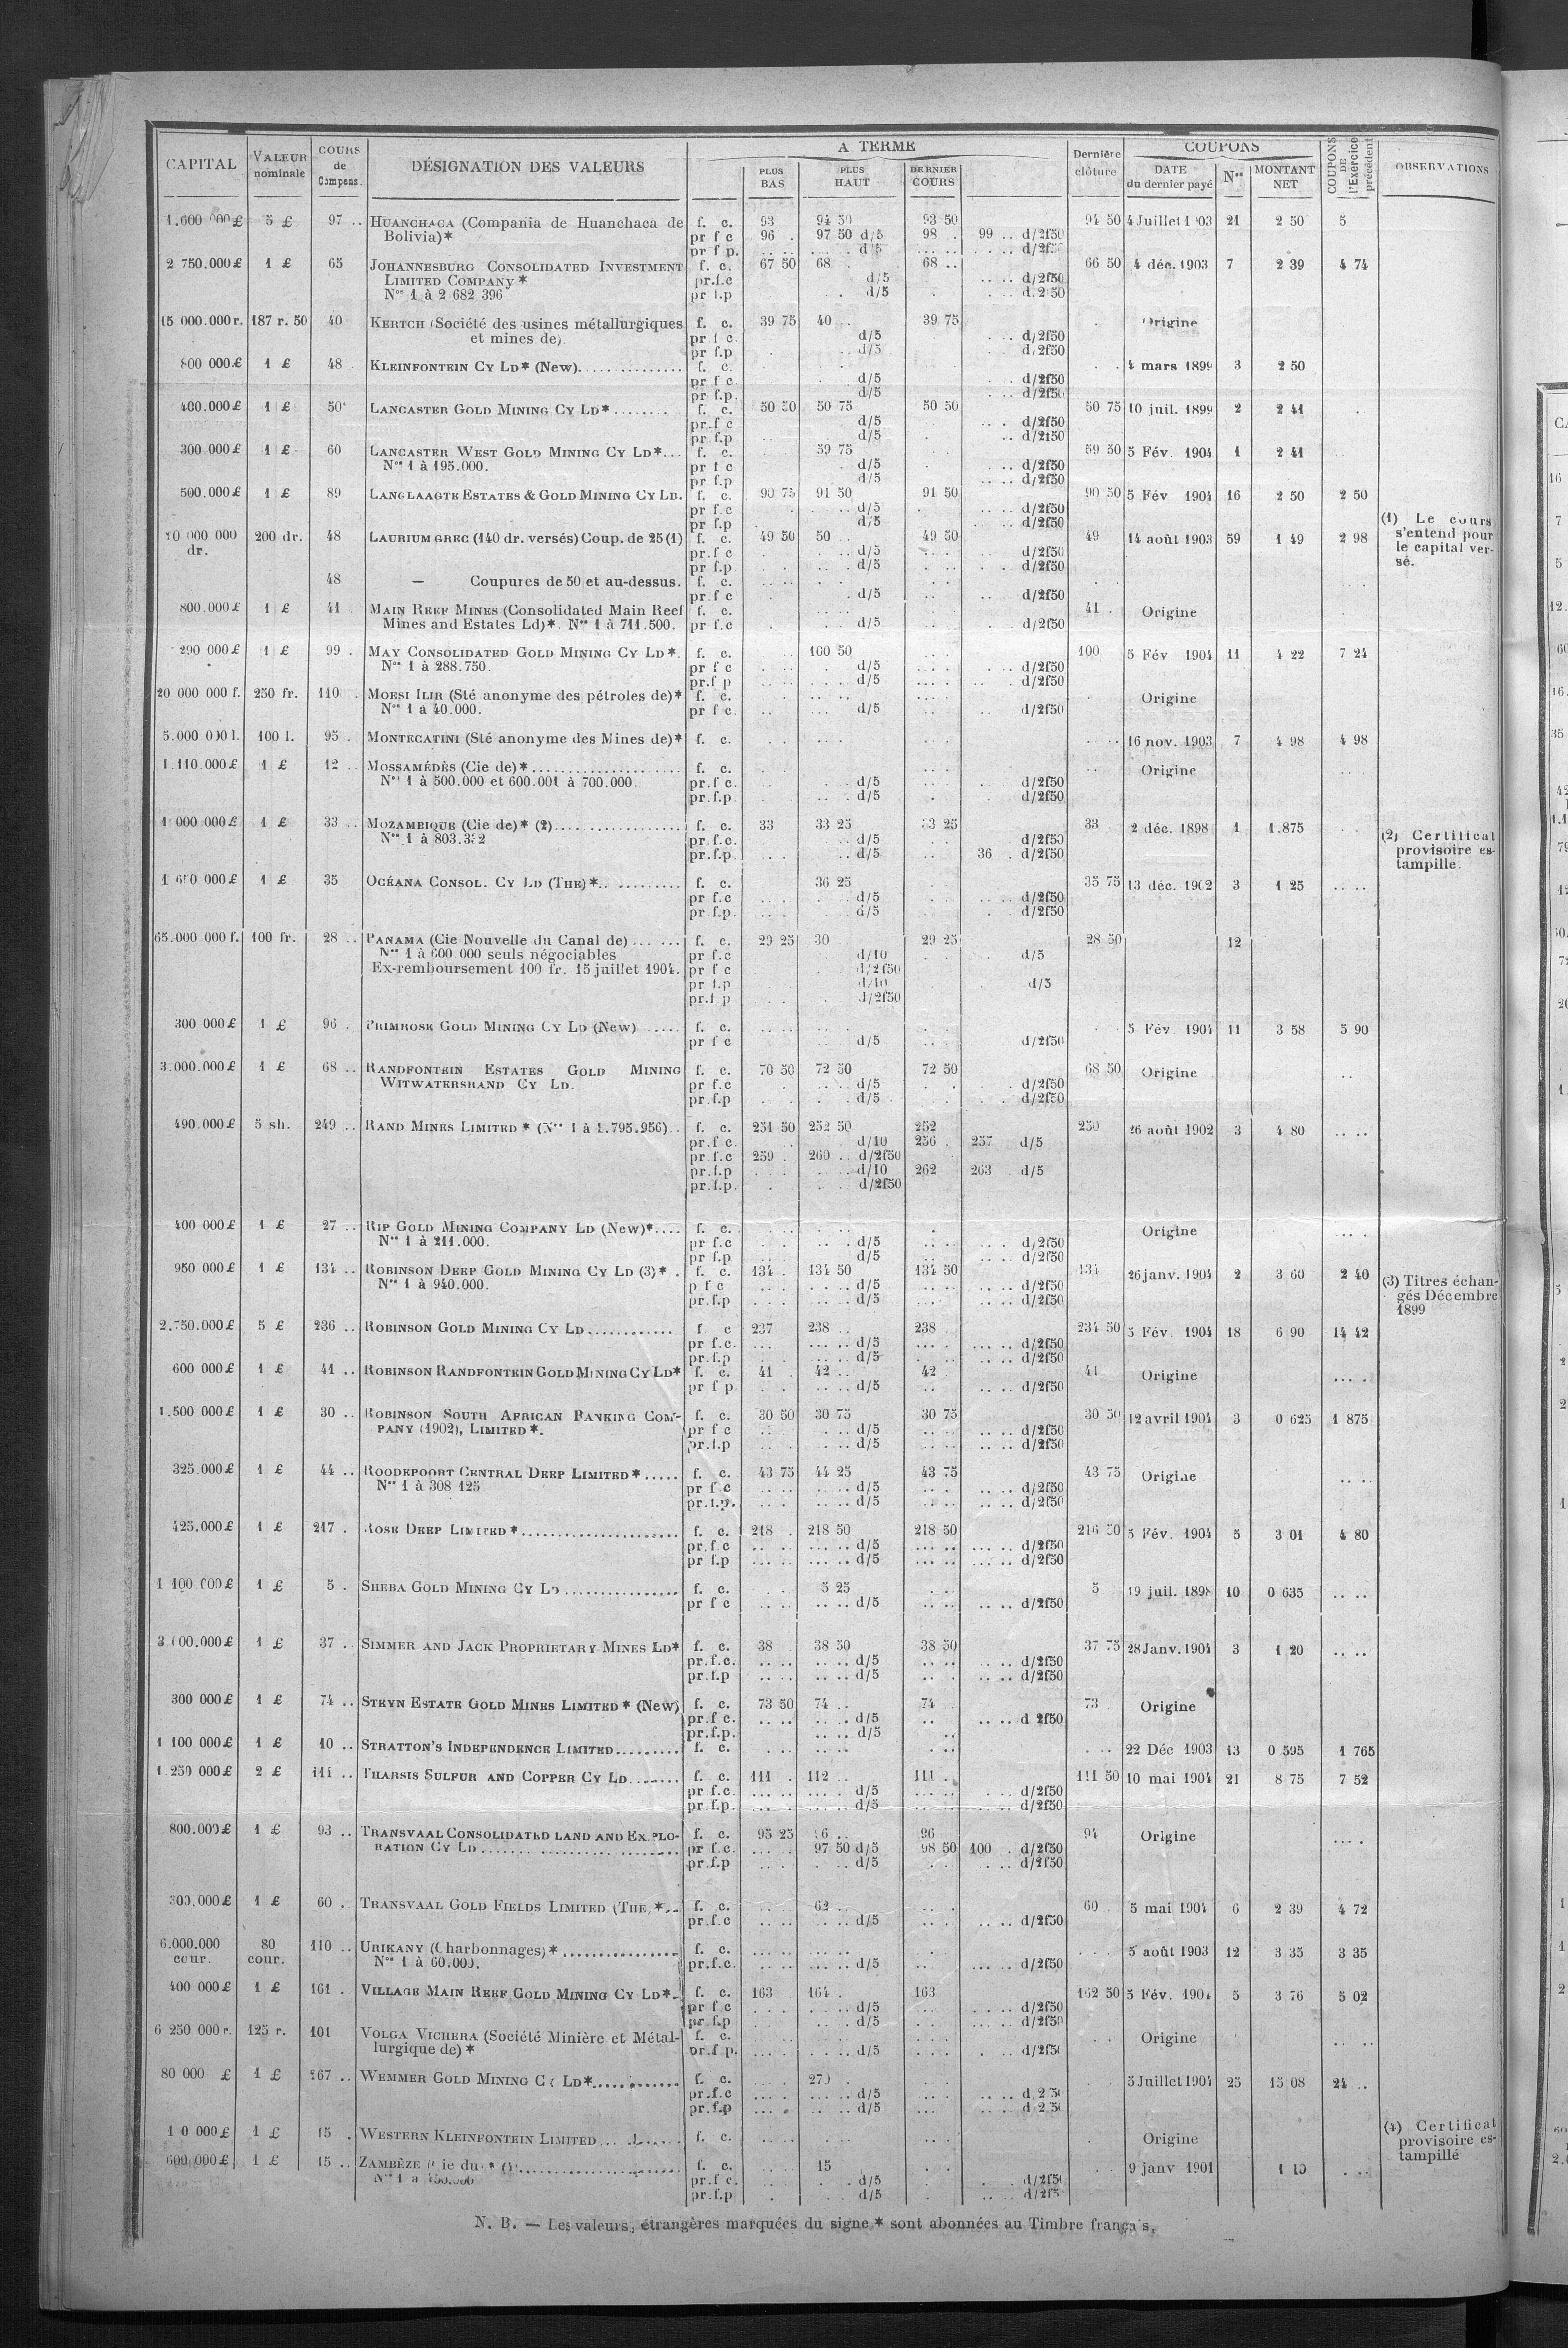 CAPITAL VALEUR nominale COURS de Compens. DÉSIGNATION DES VALEURS A TERME PLUS BAS PLUS HAUT DERNIER COURS Dernière clôture COUPONS DATE du dernier payé Nos MONTANT NET COUPONS DE l'Exercice précédent OBSERVATIONS
1.600 000 £ 5 £ 97 .. HUANCHACA (Compania de Huanchaca de f. c. 93 94 50 93 50 94 50 4 Juillet 1903 21 2 50 5
Bolivia)* pr f c 96 . 97 50 d/5 98 .. 99 .. d/2f50
pr f p. d/5 d/2f50
2 750.000 £ 1 £ 65 JOHANNESBURG CONSOLIDATED INVESTMENT f. c. 67 50 68 . 68 .. 66 50 4 déc. 1903 7 2 39 4 74
LIMITED COMPANY * pr.f.c d/5 d/2f50
Nos 1 à 2 682 396 pr f.p d/5 d/2f50
15 000.000 r. 187 r. 50 40 KERTCH (Société des usines métallurgiques f. c. 39 75 40 .. 39 75 Origine
et mines de) pr f c. d/5 d/2f50
pr f.p d/5 d/2f50
800 000 £ 1 £ 48 KLEINFONTEIN CY LD* (New) f. c. 4 mars 1899 3 2 50
pr f c d/5 d/2f50
pr f.p. d/5 d/2f50
400.000 £ 1 £ 50 LANCASTER GOLD MINING CY LD* f. c. 50 50 50 75 50 50 50 75 10 juil. 1899 2 2 41
pr.f c d/5 d/2f50
pr f.p d/5 d/2f50
300 000 £ 1 £ 60 LANCASTER WEST GOLD MINING CY LD* f. c. 59 75 59 50 5 Fév. 1904 1 2 41
Nos 1 à 195.000. pr f c d/5 d/2f50
pr f.p d/5 d/2f50
500.000 £ 1 £ 89 LANGLAAGTE ESTATES & GOLD MINING CY LD. f. c. 90 75 91 50 91 50 90 50 5 Fév 1904 16 2 50 2 50
pr f.c d/5 d/2f50
pr f.p d/5 d/2f50 (1) Le cours
000 000 200 dr. 48 LAURIUM GREC (140 dr. versés) Coup. de 25 (1) f. c. 49 50 50 .. 49 50 49 14 août 1903 59 1 49 2 98 s'entend pour
dr. pr.f c d/5 d/2f50 le capital ver-
pr f.p d/5 d/2f50 sé.
48 — Coupures de 50 et au-dessus. f. c.
pr.f c d/5 d/2f50
800.000 £ 1 £ 41 MAIN REEF MINES (Consolidated Main Reef f. c. 41 . Origine
Mines and Estates Ld)*. Nos 1 à 711.500. pr f.c d/5 d/2f50
290 000 £ 1 £ 99 . MAY CONSOLIDATED GOLD MINING CY LD*. f. c. 100 50 100 5 Fév 1904 11 4 22 7 24
Nos 1 à 288.750. pr f c d/5 d/2f50
pr.f p d/5 d/2f50
20 000 000 f. 250 fr. 110 . MOESI ILIR (Sté anonyme des pétroles de)* f. c. Origine
Nos 1 à 40.000. pr f c. d/5 d/2f50
5.000 000 l. 100 l. 95 . MONTECATINI (Sté anonyme des Mines de)* f. c. 16 nov. 1903 7 4 98 4 98
1.110.000 £ 1 £ 12 .. MOSSAMÉDÈS (Cie de)* f. c. Origine
Nos 1 à 500.000 et 600.001 à 700.000. pr.f c. d/5 d/2f50
pr.f.p. d/5 d/2f50
1 000 000 £ 1 £ 33 .. MOZAMBIQUE (Cie de)* (2) f. c. 33 33 25 33 25 33 2 déc. 1898 1 1.875 (2) Certificat
Nos 1 à 803.3 2 pr.f.c. d/5 d/2f50 provisoire es-
pr.f.p. d/5 36 . d/2f50 tampille.
£ 1 £ 35 OCÉANA CONSOL. CY LD (THE)* f. c. 36 25 35 75 13 déc. 1902 3 1 25
pr f.c d/5 d/2f50
pr f.p. d/5 d/2f50
65.000 000 f. 100 fr. 28 .. PANAMA (Cie Nouvelle du Canal de) f. c. 29 25 30 29 25 28 50 12
Nos 1 à 600 000 seuls négociables pr f.c d/10 d/5
Ex-remboursement 100 fr. 15 juillet 1904. pr f c d/2f50
pr f.p d/10 d/5
pr.f p d/2f50
300 000 £ 1 £ 96 . PRIMROSE GOLD MINING CY LD (New) f. c. 5 Fév. 1904 11 3 58 5 90
pr f c d/5 d/2f50
3.000.000 £ 1 £ 68 .. RANDFONTEIN ESTATES GOLD MINING f. c. 70 50 72 50 72 50 68 50 Origine
WITWATERSRAND CY LD. pr f.c d/5 d/2f50
pr.f.p d/5 d/2f50
490.000 £ 5 sh. 249 .. RAND MINES LIMITED * (Nos 1 à 1.795.956) f. c. 251 50 252 50 252 250 26 août 1902 3 4 80
pr.f c. d/10 256 . 257 d/5
pr.f.c 259 . 260 .. d/2f50
pr.f.p d/10 262 263 . d/5
pr.f.p. d/2f50
400 000 £ 1 £ 27 .. RIP GOLD MINING COMPANY LD (New)* f. c. Origine
Nos 1 à 211.000. pr f.c d/5 d/2f50
pr f.p d/5 d/2f50
950 000 £ 1 £ 134 .. ROBINSON DEEP GOLD MINING CY LD (3)* . f. c. 134 . 134 50 134 50 134 26 janv. 1904 2 3 60 2 40 (3) Titres échan-
Nos 1 à 940.000. p f c d/5 d/2f50 gés Décembre
pr.f.p d/5 d/2f50 1899
2.750.000 £ 5 £ 236 .. ROBINSON GOLD MINING CY LD f c 237 238 .. 238 234 50 5 Fév. 1904 18 6 90 14 42
pr f.c. d/5 d/2f50
pr.f.p d/5 d/2f50
600 000 £ 1 £ 41 .. ROBINSON RANDFONTEIN GOLD MINING CY LD* f. c. 41 . 42 .. 42 41 Origine
pr f p. d/5 d/2f50
1.500 000 £ 1 £ 30 .. ROBINSON SOUTH AFRICAN BANKING COM- f. c. 30 50 30 75 30 75 30 50 12 avril 1904 3 0 625 1 875
PANY (1902), LIMITED *. pr f c d/5 d/2f50
pr.f.p d/5 d/2f50
325.000 £ 1 £ 44 .. ROODEPOORT CENTRAL DEEP LIMITED * f. c. 43 75 44 25 43 75 43 75 Origine
Nos 1 à 308 125 pr f c d/5 d/2f50
pr.f.p. d/5 d/2f50
425.000 £ 1 £ 217 . ROSE DEEP LIMITED * f. c. 218 . 218 50 218 50 216 50 5 Fév. 1904 5 3 01 4 80
pr.f c d/5 d/2f50
pr f.p d/5 d/2f50
1 100.000 £ 1 £ 5 . SHEBA GOLD MINING CY LD f. c. 5 25 5 19 juil. 1898 10 0 635
pr f c d/5 d/2f50
3 000.000 £ 1 £ 37 . SIMMER AND JACK PROPRIETARY MINES LD* f. c. 38 38 50 38 50 37 75 28 Janv. 1904 3 1 20
pr.f.c. d/5 d/2f50
pr.f.p d/5 d/2f50
300 000 £ 1 £ 74 .. STEYN ESTATE GOLD MINES LIMITED * (New) f. c. 73 50 74 .. 74 73 Origine
pr.f c. d/5 d 2f50
pr.f.p. d/5
1 100 000 £ 1 £ 10 .. STRATTON'S INDEPENDENCE LIMITED f. c. 22 Déc 1903 13 0 595 1 765
1.250 000 £ 2 £ 111 .. THARSIS SULFUR AND COPPER CY LD f. c. 111 . 112 .. 111 . 111 50 10 mai 1904 21 8 75 7 52
pr f.c. d/5 d/2f50
pr.f.p. d/5 d/2f50
800.000 £ 1 £ 93 .. TRANSVAAL CONSOLIDATED LAND AND EXPLO- f. c. 95 25 96 .. 96 94 Origine
RATION CY LD pr f.c. 97 50 d/5 98 50 100 . d/2f50
pr.f.p d/5 d/2f50
300.000 £ 1 £ 60 . TRANSVAAL GOLD FIELDS LIMITED (THE)* f. c. 62 .. 60 . 5 mai 1904 6 2 39 4 72
pr.f.c d/5 d/2f50
6.000.000 80 110 .. URIKANY (Charbonnages)* f. c. 5 août 1903 12 3 35 3 35
cour. cour. Nos 1 à 60.000. pr.f.c. d/5 d/2f50
400 000 £ 1 £ 161 . VILLAGE MAIN REEF GOLD MINING CY LD* f. c. 163 164 . 163 162 50 5 Fév. 1904 5 3 76 5 02
pr f c d/5 d/2f50
pr f.p d/5 d/2f50
6 250 000 r. 125 r. 101 VOLGA VICHERA (Société Minière et Métal- f. c. Origine
lurgique de) * pr.f p. d/5 d/2f50
80 000 £ 1 £ 267 .. WEMMER GOLD MINING CY LD* f. c. 270 . 5 Juillet 1904 25 15 08 24 ..
pr.f.c d/5 d 2 50
pr.f.p d/5 d 2 50
£ 1 £ 15 . WESTERN KLEINFONTEIN LIMITED f. c. Origine (4) Certificat
600 000 £ 1 £ 15 .. ZAMBÈZE (Cie du)* f. c. 15 9 janv 1901 1 10 provisoire es-
Nos 1 à 450.000 pr.f c. d/5 d/2f50 tampillé
pr.f.p d/5 d/2f5
N. B. — Les valeurs, étrangères marquées du signe * sont abonnées au Timbre français.